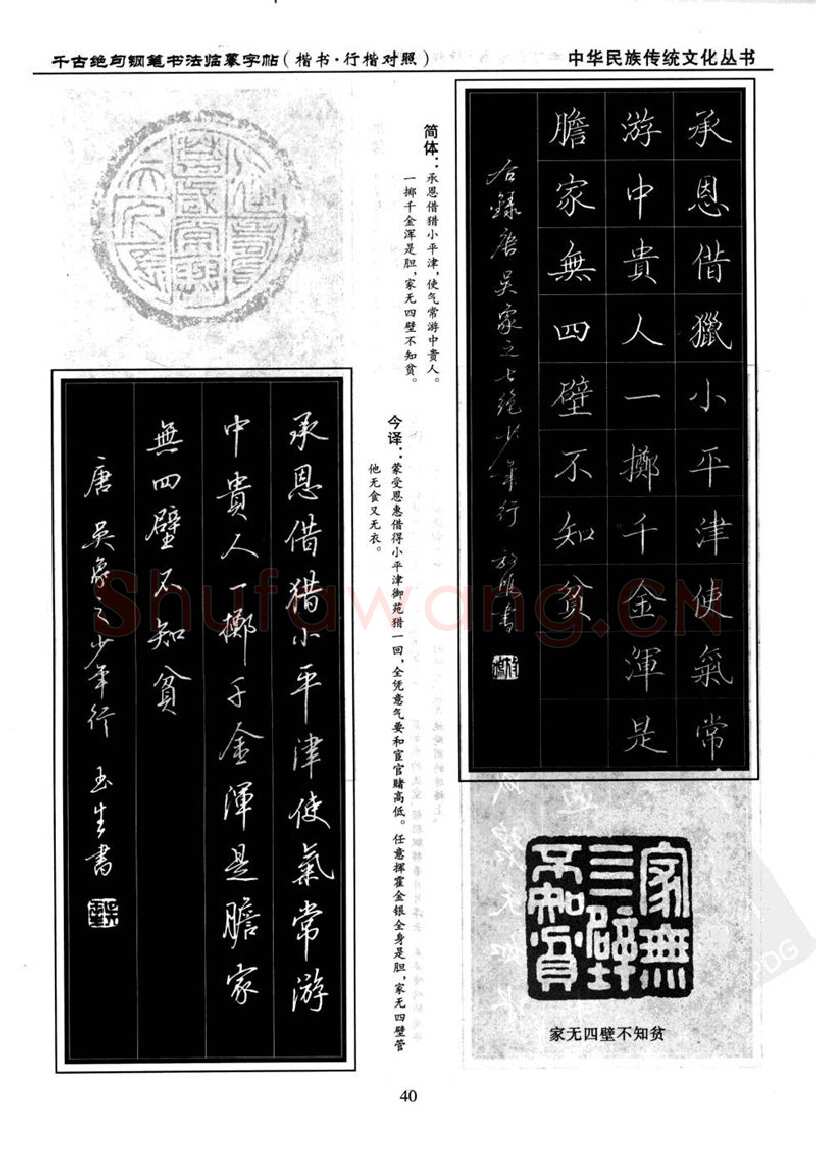 千古绝句钢笔书法临摹字帖(楷书·行楷对照)
中华民族传统文化丛书
承恩借獵小平津使氣常
游中貴人一擲千金渾是
膽家無四壁不知貧
右録唐吴象之七絕少年行 書
简体:承恩借猎小平津,使气常游中贵人。
一掷千金浑是胆,家无四壁不知贫。
今译:蒙受恩惠借得小平津御苑猎一回,全凭意气要和宦官赌高低。任意挥霍金银全身是胆,家无四壁管
他无食又无衣。
承恩借猎小平津使氣常游
中貴人一擲千金渾是膽家
無四壁不知貧
唐 吴象之少年行 玉生書
家無
亖壁
不知貧
家无四壁不知贫
40
Shufawang.CN
PDG